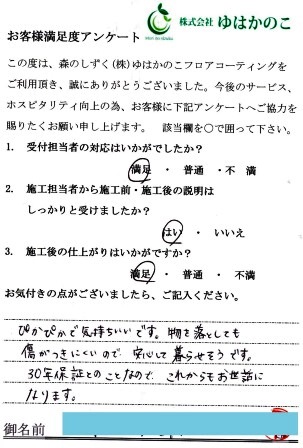 株式会社 ゆはかのこ
お客様満足度アンケート
この度は、森のしずく(株)ゆはかのこフロアコーティングを
ご利用頂き、誠にありがとうございました。今後のサービス、
ホスピタリティ向上の為、お客様に下記アンケートへご協力を
賜りたくお願い申し上げます。 該当欄を○で囲って下さい。
1. 受付担当者の対応はいかがでしたか?
満足 ・ 普通 ・不 満
2. 施工担当者から施工前・施工後の説明は
しっかりと受けましたか?
はい ・ いいえ
3. 施工後の仕上がりはいかがですか?
満足 ・ 普通 ・ 不満
お気付きの点がございましたら、ご記入ください。
ぴかぴかで気持ちいいです。物を落としても
傷がつきにくいので 安心して暮らせそうです。
30年保証とのことなので、これからもお世話に
なります。
御名前